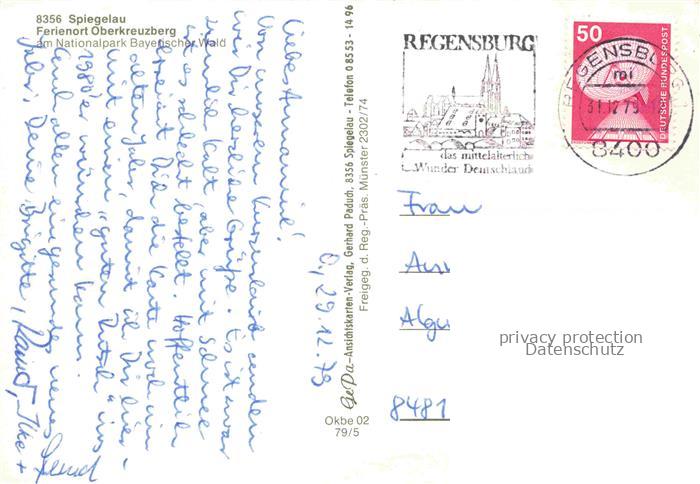 8356 Spiegelau
Ferienort Oberkreuzberg
am Nationalpark Bayerischer Wald
O, 29.12.79
Liebe Annamirl!
Von unserem Kurzurlaub senden
wir Dir herzliche Grüße. Es ist zwar
ziemlich kalt, aber mit Schnee
ist es schlecht bestellt. Hoffentlich
erreicht Dich die Karte noch im
alten Jahr, damit ich Dir hier-
mit einen "guten Rutsch" ins
1980er wünschen kann.
Euch allen ein gesundes neues
Jahr! Deine Brigitte, Rainer, Ilke +
Bernd
GePa-Ansichtskarten-Verlag, Gerhard Paduch, 8356 Spiegelau - Telefon 08553-1496
Freigeg. d. Reg.-Präs. Münster 2302/74
Okbe 02
79/5
REGENSBURG
das mittelalterliche
Wunder Deutschlands
50
DEUTSCHE BUNDESPOST
REGENSBURG 1
mi
31.12.79
8400
Frau
8481
privacy protection
Datenschutz